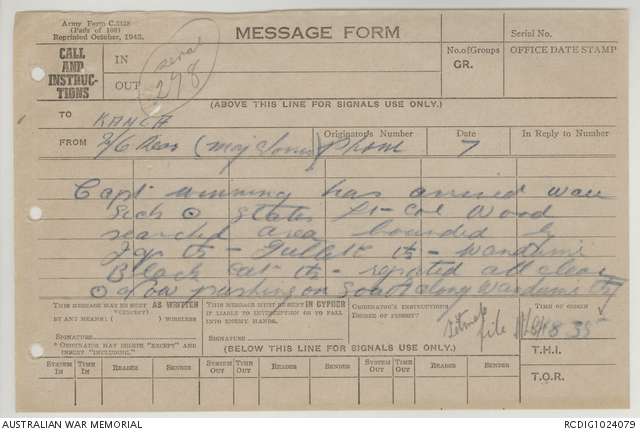 Army Form C.2128
(Pads of 100)
Reprinted October, 1943.
MESSAGE FORM
Serial No.
CALL AND INSTRUC-TIONS
IN
OUT
serial 278
No. of Groups
GR.
OFFICE DATE STAMP
(ABOVE THIS LINE FOR SIGNALS USE ONLY.)
TO KANGA
FROM 2/6 (Maj Jones) Phone
Originator's Number
Date 7
In Reply to Number
Capt Winning has arrived
sick states Lt-Col Wood
searched area bounded by
Jap tk - Tullett tk - Wandumi
Black Cat tk - reported all clear
now pushing on along Wandumi tk
THIS MESSAGE MAY BE SENT AS WRITTEN
(EXCEPT)
BY ANY MEANS ( ) WIRELESS
SIGNATURE
* ORIGINATOR MAY DELETE "EXCEPT" AND INSERT "INCLUDING."
THIS MESSAGE MUST BE SENT IN CYPHER
IF LIABLE TO INTERCEPTION OR TO FALL INTO ENEMY HANDS.
SIGNATURE
ORIGINATOR'S INSTRUCTIONS
DEGREE OF PRIORITY
file
TIME OF ORIGIN
1835
T.H.I.
T.O.R.
(BELOW THIS LINE FOR SIGNALS USE ONLY.)
SYSTEM IN
TIME IN
READER
SENDER
SYSTEM OUT
TIME OUT
READER
SENDER
SYSTEM OUT
TIME OUT
READER
SENDER
AUSTRALIAN WAR MEMORIAL
RCDIG1024079